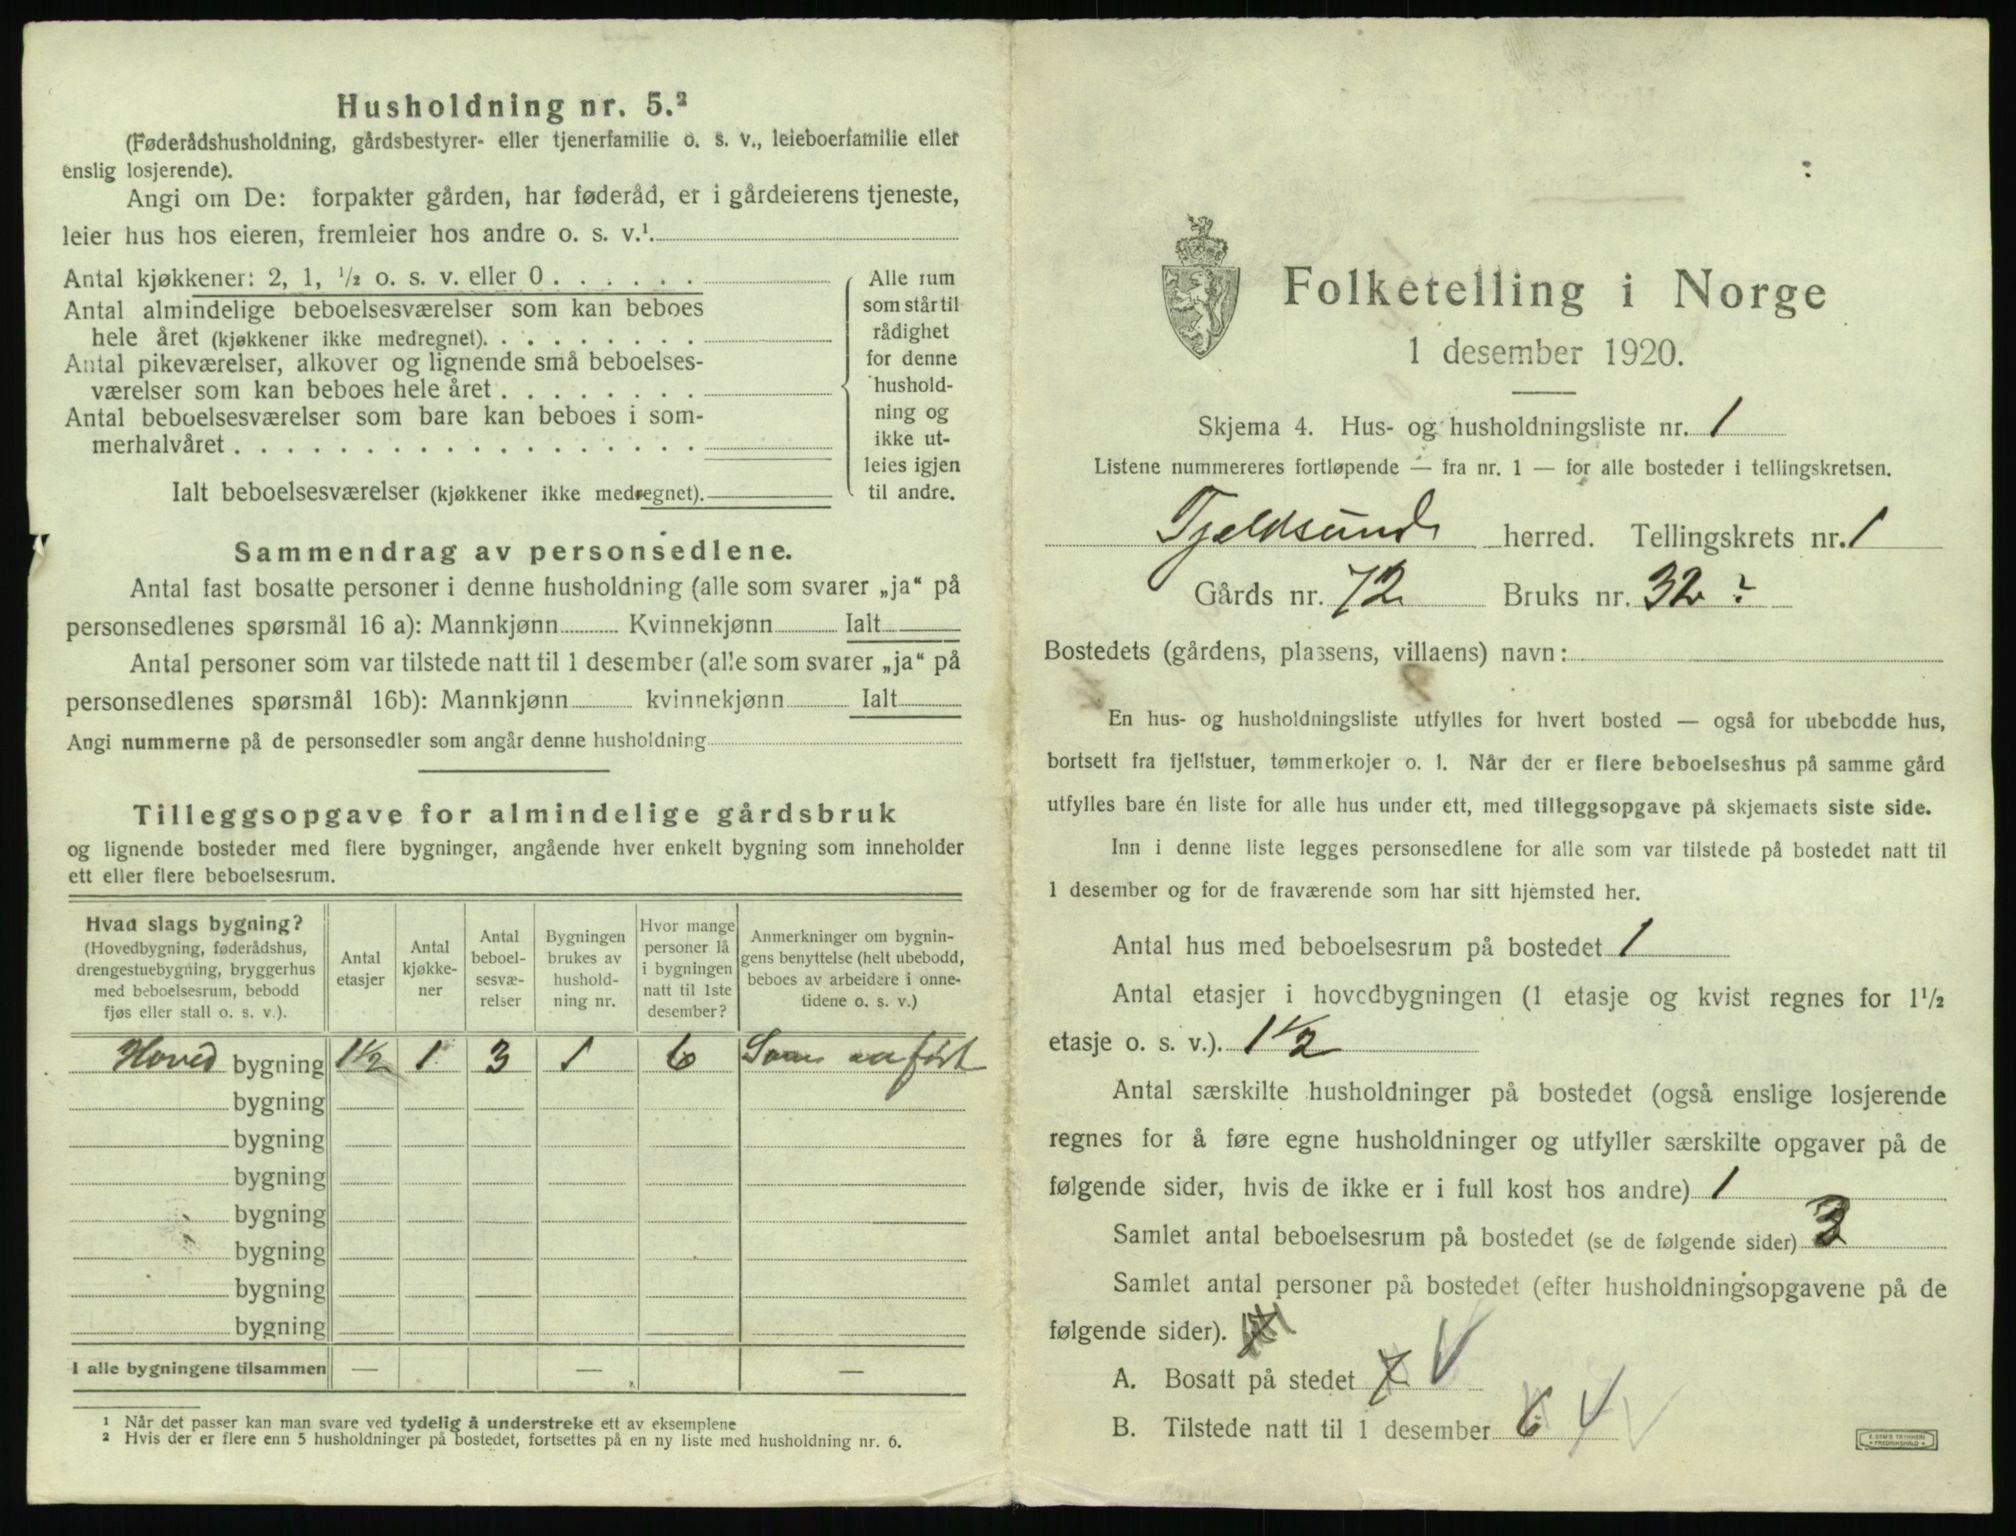 Husholdning nr. 5.²
(Føderådshusholdning, gårdsbestyrer- eller tjenerfamilie o. s. v., leieboerfamilie eller
enslig losjerende).
Angi om De: forpakter gården, har føderåd, er i gårdeierens tjeneste,
leier hus hos eieren, fremleier hos andre o. s. v.¹.
Antal kjøkkener: 2, 1, ½ o. s. v. eller 0 . . . . . .
Antal almindelige beboelsesværelser som kan beboes
hele året (kjøkkener ikke medregnet). . . . . . . . .
Antal pikeværelser, alkover og lignende små beboelses-
værelser som kan beboes hele året . . . . . . . .
Antal beboelsesværelser som bare kan beboes i som-
merhalvåret . . . . . . . . . . . . . . . . . .
Ialt beboelsesværelser (kjøkkener ikke medregnet).
Alle rum
som står til
rådighet
for denne
hushold-
ning og
ikke ut-
leies igjen
til andre.
Sammendrag av personsedlene.
Antal fast bosatte personer i denne husholdning (alle som svarer „ja“ på
personsedlenes spørsmål 16 a): Mannkjønn Kvinnekjønn Ialt
Antal personer som var tilstede natt til 1 desember (alle som svarer „ja“ på
personsedlenes spørsmål 16b): Mannkjønn kvinnekjønn Ialt
Angi nummerne på de personsedler som angår denne husholdning
Tilleggsopgave for almindelige gårdsbruk
og lignende bosteder med flere bygninger, angående hver enkelt bygning som inneholder
ett eller flere beboelsesrum.
Hvad slags bygning?
(Hovedbygning, føderådshus,
drengestuebygning, bryggerhus
med beboelsesrum, bebodd
fjøs eller stall o. s. v.).
Antal
etasjer
Antal
kjøkke-
ner
Antal
beboel-
sesvæ-
relser
Bygningen
brukes av
hushold-
ning nr.
Hvor mange
personer lå
i bygningen
natt til 1ste
desember?
Anmerkninger om bygnin-
gens benyttelse (helt ubebodd,
beboes av arbeidere i onne-
tidene o. s. v.)
Hoved bygning 1½ 1 3 1 6 Som anført
bygning
bygning
bygning
bygning
bygning
bygning
bygning
I alle bygningene tilsammen — — —
¹ Når det passer kan man svare ved tydelig å understreke ett av eksemplene
² Hvis der er flere enn 5 husholdninger på bostedet, fortsettes på en ny liste med husholdning nr. 6.
Folketelling i Norge
1 desember 1920.
Skjema 4. Hus- og husholdningsliste nr. 1
Listene nummereres fortløpende — fra nr. 1 — for alle bosteder i tellingskretsen.
Tjeldsund herred. Tellingskrets nr. 1
Gårds nr. 72 Bruks nr. 32 ?
Bostedets (gårdens, plassens, villaens) navn:
En hus- og husholdningsliste utfylles for hvert bosted — også for ubebodde hus,
bortsett fra fjellstuer, tømmerkojer o. l. Når der er flere beboelseshus på samme gård
utfylles bare én liste for alle hus under ett, med tilleggsopgave på skjemaets siste side.
Inn i denne liste legges personsedlene for alle som var tilstede på bostedet natt til
1 desember og for de fraværende som har sitt hjemsted her.
Antal hus med beboelsesrum på bostedet 1
Antal etasjer i hovedbygningen (1 etasje og kvist regnes for 1½
etasje o. s. v.). 1½
Antal særskilte husholdninger på bostedet (også enslige losjerende
regnes for å føre egne husholdninger og utfyller særskilte opgaver på de
følgende sider, hvis de ikke er i full kost hos andre) 1
Samlet antal beboelsesrum på bostedet (se de følgende sider) 3
Samlet antal personer på bostedet (efter husholdningsopgavene på de
følgende sider).
A. Bosatt på stedet 7
B. Tilstede natt til 1 desember 6 4
E. SEM'S TRYKKERI
FREDRIKSHALD